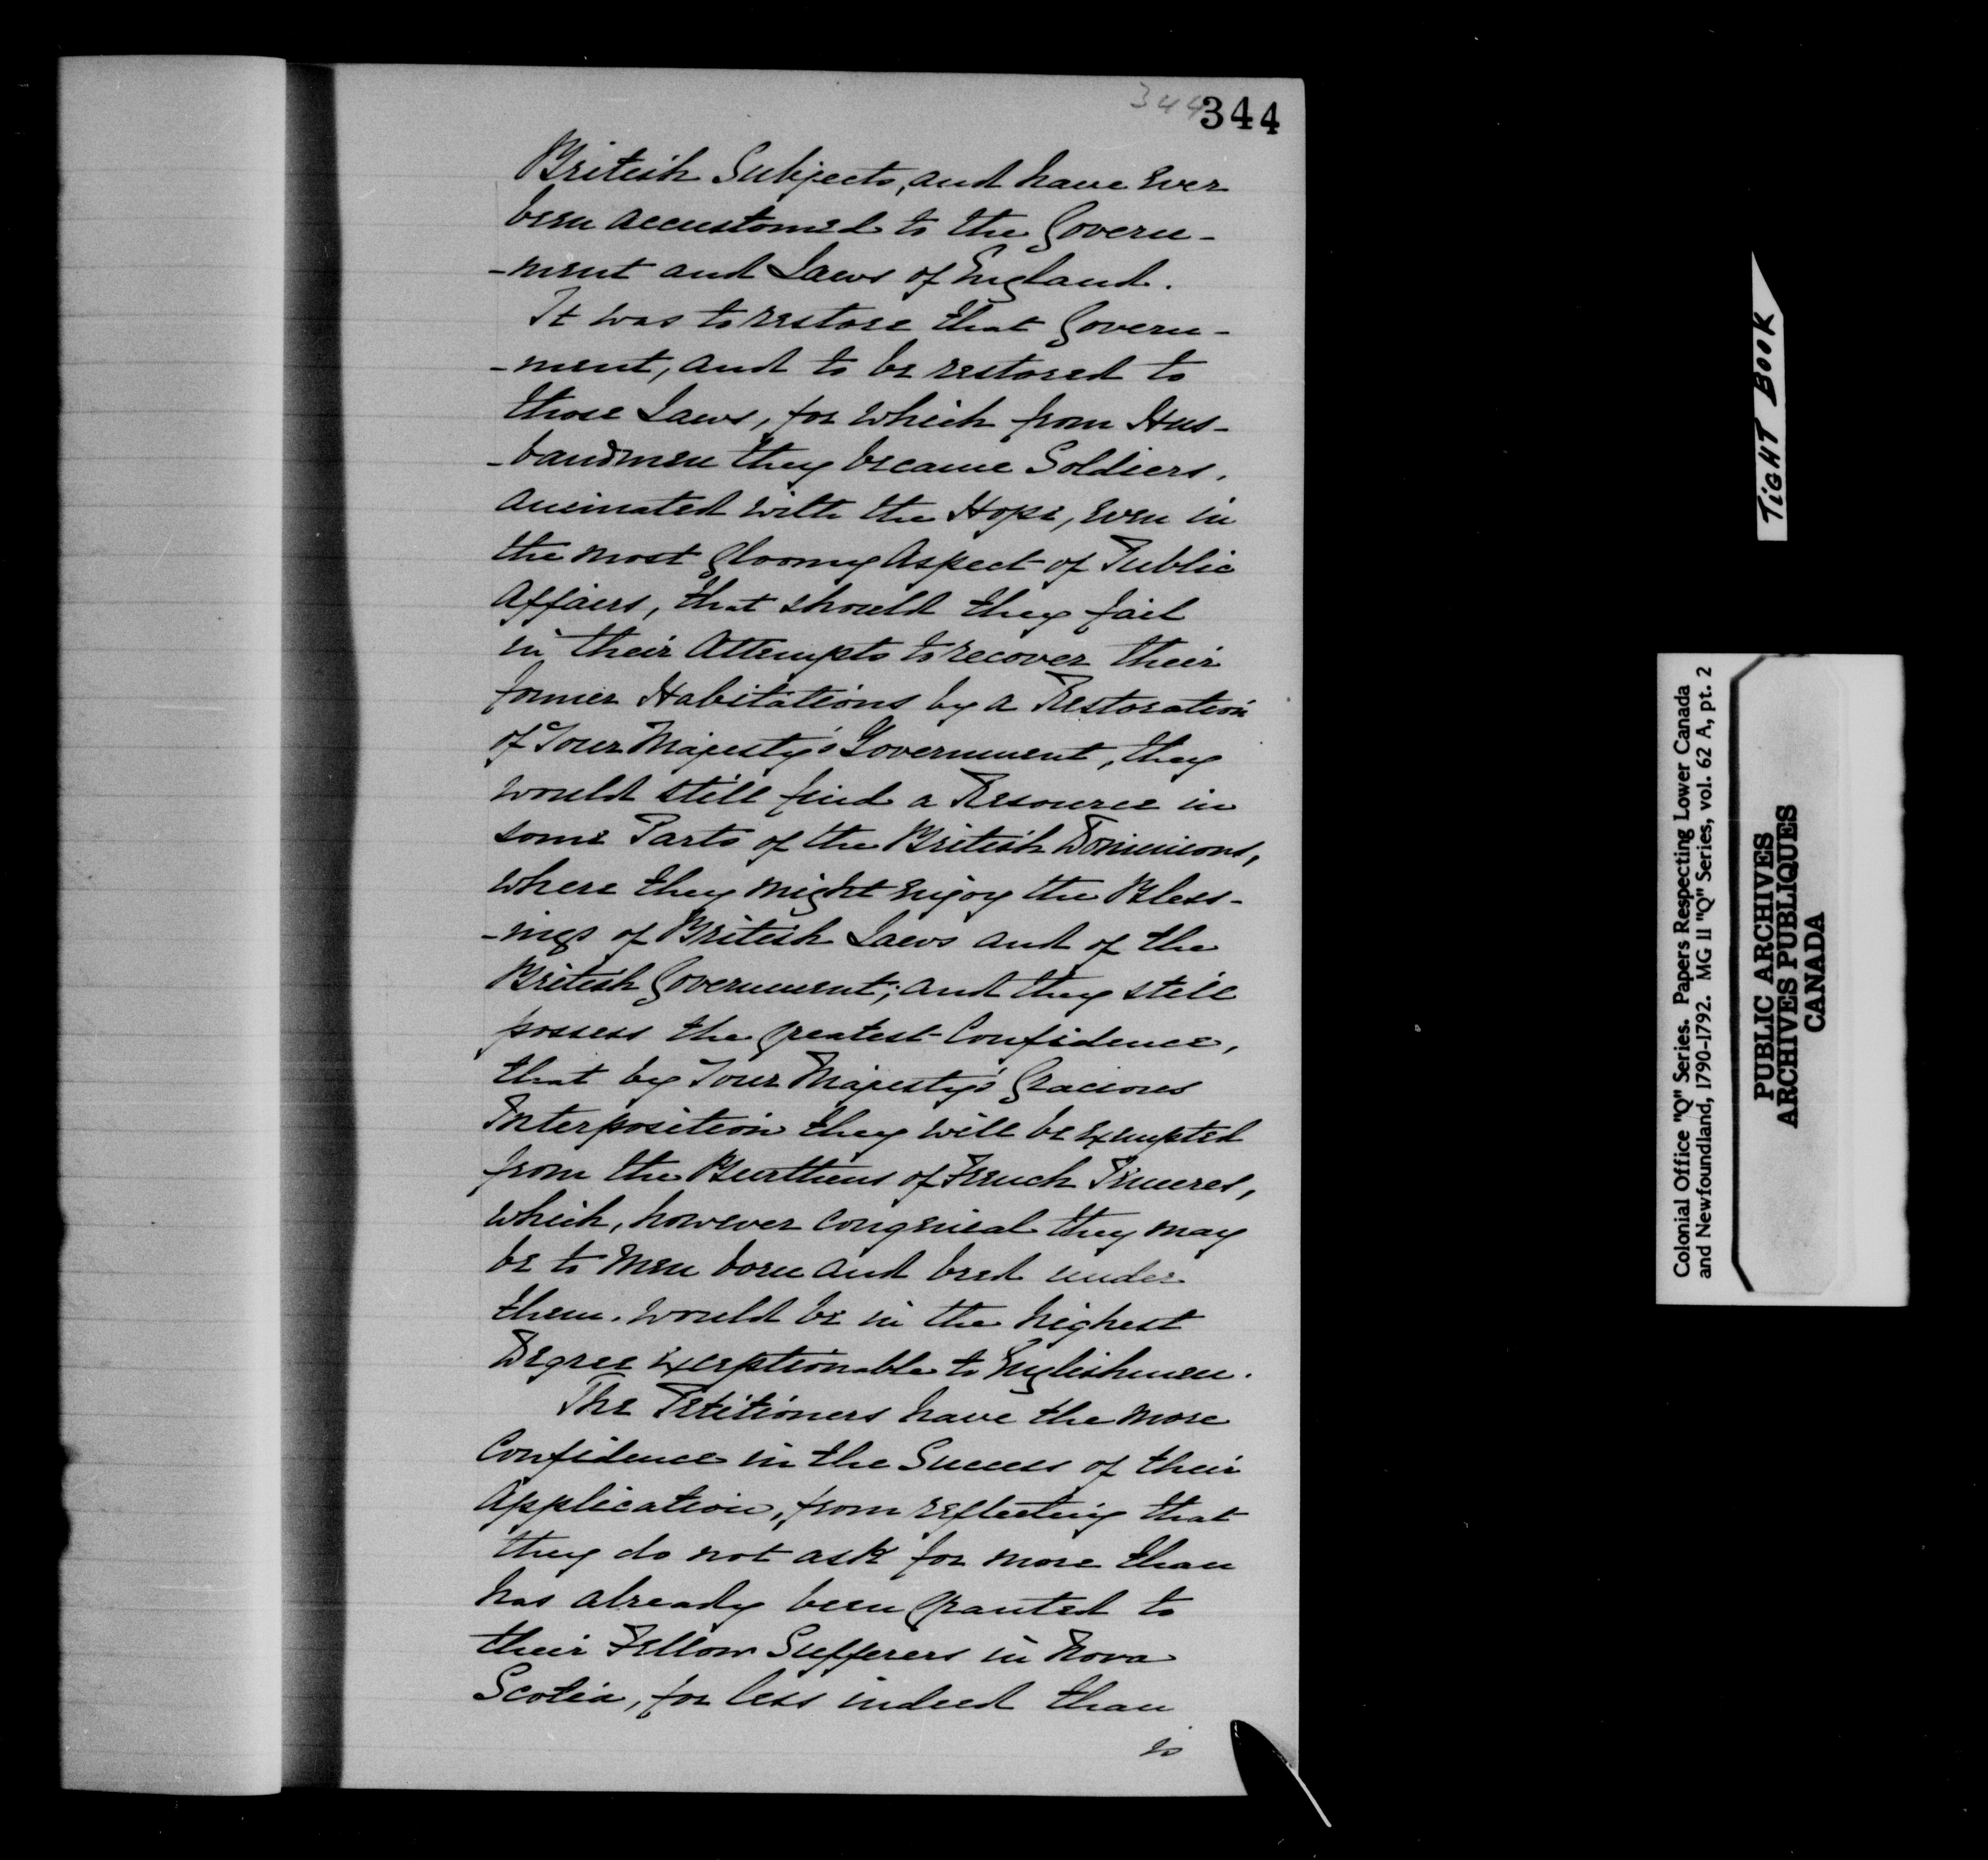 344
344
British Subjects, and have ever
been accustomed to the Govern-
-ment and Laws of England.
It was to restore that Govern-
-ment, and to be restored to
those Laws, for which from Hus-
-bandmen they became Soldiers,
animated with the Hope, even in
the most gloomy Aspect of Public
Affairs, that should they fail
in their Attempts to recover their
former Habitations by a Restoration
of Your Majesty's Government, they
would still find a Resource in
some Parts of the British Dominions,
where they might enjoy the Bless-
-ings of British Laws and of the
British Government; and they still
possess the greatest Confidence,
that by Your Majesty's Gracious
Interposition they will be exempted
from the Burthens of French Tenures,
which, however congenial they may
be to Men born and bred under
them, would be in the highest
Degree exceptionable to Englishmen.
The Petitioners have the more
Confidence in the Success of their
Application, from reflecting that
they do not ask for more than
has already been granted to
their Fellow Sufferers in Nova
Scotia, for less indeed than
is
TIGHT BOOK
Colonial Office "Q" Series. Papers Respecting Lower Canada
and Newfoundland, 1790-1792. MG 11 "Q" Series, vol. 62 A, pt. 2
PUBLIC ARCHIVES
ARCHIVES PUBLIQUES
CANADA